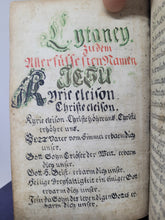 Lytaney
Zu dem
Aller süssesten Namen
JESU
Kyrie eleison.
Christe eleison.
Kyrie eleison. Christe höre uns. Christe
erhöre uns.
Gott Vater vom Himmel erbarm dich
unser.
Gott Sohn Erlöser der Welt. erbarm
dich unser.
Gott H. Geist. erbarm dich unser.
Heilige Dreyfaltigkeit ein einiger Gott
erbarm dich unser.
Jesu du Sohn des lebendigen Gottes er¬
barm dich unser.